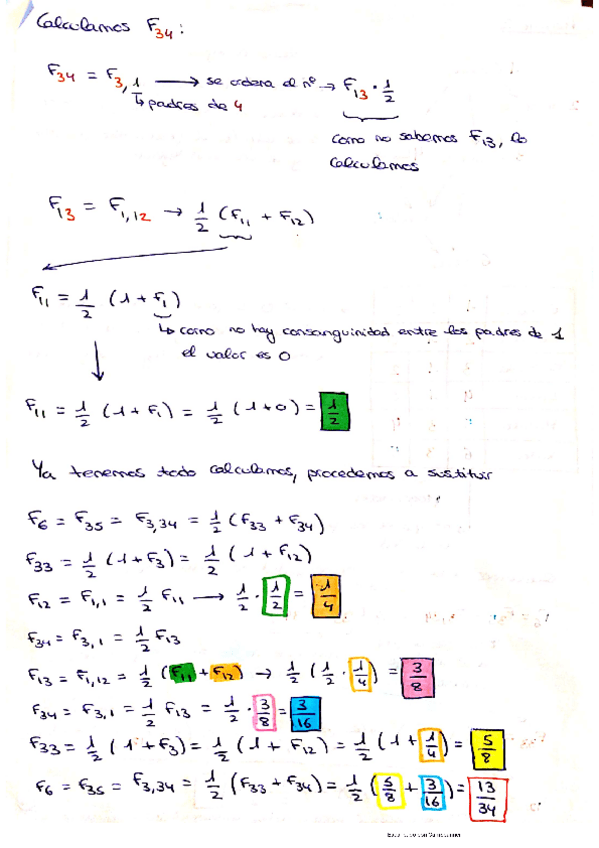 Calculamos F34:
F34 = F3,1 → se ordena el nº → F13 · 1/2
↳ padres de 4
como no sabemos F13, lo
calculamos
F13 = F1,12 → 1/2 (F11 + F12)
F11 = 1/2 (1 + F1)
↳ como no hay consanguinidad entre los padres de 1
el valor es 0
F11 = 1/2 (1 + F1) = 1/2 (1+0) = 1/2
Ya tenemos todo calculamos, procedemos a sustituir
F6 = F35 = F3,34 = 1/2 (F33 + F34)
F33 = 1/2 (1 + F3) = 1/2 (1 + F12)
F12 = F1,1 = 1/2 F11 → 1/2 · 1/2 = 1/4
F34 = F3,1 = 1/2 F13
F13 = F1,12 = 1/2 (F11 + F12) → 1/2 (1/2 · 1/4) = 3/8
F34 = F3,1 = 1/2 F13 = 1/2 · 3/8 = 3/16
F33 = 1/2 (1 + F3) = 1/2 (1 + F12) = 1/2 (1 + 1/4) = 5/8
F6 = F35 = F3,34 = 1/2 (F33 + F34) = 1/2 (5/8 + 3/16) = 13/34